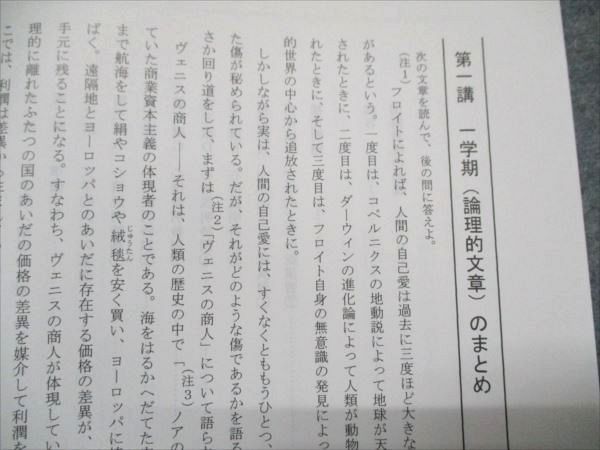 第一講　一学期（論理的文章）のまとめ
次の文章を読んで、後の問に答えよ。
（注1）フロイトによれば、人間の自己愛は過去に三度ほど大きな
があるという。一度目は、コペルニクスの地動説によって地球が天
されたときに、二度目は、ダーウィンの進化論によって人類が動物
れたときに、そして三度目は、フロイト自身の無意識の発見によっ
的世界の中心から追放されたときに。
しかしながら実は、人間の自己愛には、すくなくとももうひとつ、
た傷が秘められている。だが、それがどのような傷であるかを語る
さか回り道をして、まずは（注2）「ヴェニスの商人」について語られ
ヴェニスの商人――それは、人類の歴史の中で「（注3）ノアの
ていた商業資本主義の体現者のことである。海をはるかへだてた
まで航海をして絹やコショウや絨毯じゅうたんを安く買い、ヨーロッパに
ばく。遠隔地とヨーロッパとのあいだに存在する価格の差異が、
手元に残ることになる。すなわち、ヴェニスの商人が体現してい
理的に離れたふたつの国のあいだの価格の差異を媒介して利潤を
こでは、利潤は差異から